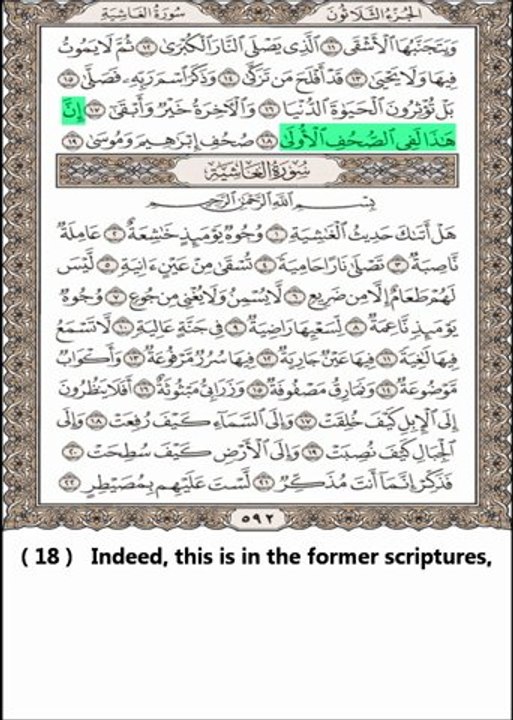 الجزء الثلاثون سورة الغاشية
وَيَتَجَنَّبُهَا ٱلْأَشْقَى ١١ ٱلَّذِى يَصْلَى ٱلنَّارَ ٱلْكُبْرَىٰ ١٢ ثُمَّ لَا يَمُوتُ
فِيهَا وَلَا يَحْيَىٰ ١٣ قَدْ أَفْلَحَ مَن تَزَكَّىٰ ١٤ وَذَكَرَ ٱسْمَ رَبِّهِۦ فَصَلَّىٰ ١٥
بَلْ تُؤْثِرُونَ ٱلْحَيَوٰةَ ٱلدُّنْيَا ١٦ وَٱلْءَاخِرَةُ خَيْرٌ وَأَبْقَىٰٓ ١٧ إِنَّ
هَٰذَا لَفِى ٱلصُّحُفِ ٱلْأُولَىٰ ١٨ صُحُفِ إِبْرَٰهِيمَ وَمُوسَىٰ ١٩
سُورَةُ الغَاشِيَةِ
بِسْمِ ٱللَّهِ ٱلرَّحْمَٰنِ ٱلرَّحِيمِ
هَلْ أَتَىٰكَ حَدِيثُ ٱلْغَٰشِيَةِ ١ وُجُوهٌ يَوْمَئِذٍ خَٰشِعَةٌ ٢ عَامِلَةٌ
نَّاصِبَةٌ ٣ تَصْلَىٰ نَارًا حَامِيَةً ٤ تُسْقَىٰ مِنْ عَيْنٍ ءَانِيَةٍ ٥ لَّيْسَ
لَهُمْ طَعَامٌ إِلَّا مِن ضَرِيعٍ ٦ لَّا يُسْمِنُ وَلَا يُغْنِى مِن جُوعٍ ٧ وُجُوهٌ
يَوْمَئِذٍ نَّاعِمَةٌ ٨ لِّسَعْيِهَا رَاضِيَةٌ ٩ فِى جَنَّةٍ عَالِيَةٍ ١٠ لَّا تَسْمَعُ
فِيهَا لَٰغِيَةً ١١ فِيهَا عَيْنٌ جَارِيَةٌ ١٢ فِيهَا سُرُرٌ مَّرْفُوعَةٌ ١٣ وَأَكْوَابٌ
مَّوْضُوعَةٌ ١٤ وَنَمَارِقُ مَصْفُوفَةٌ ١٥ وَزَرَابِىُّ مَبْثُوثَةٌ ١٦ أَفَلَا يَنظُرُونَ
إِلَى ٱلْإِبِلِ كَيْفَ خُلِقَتْ ١٧ وَإِلَى ٱلسَّمَآءِ كَيْفَ رُفِعَتْ ١٨ وَإِلَى
ٱلْجِبَالِ كَيْفَ نُصِبَتْ ١٩ وَإِلَى ٱلْأَرْضِ كَيْفَ سُطِحَتْ ٢٠
فَذَكِّرْ إِنَّمَآ أَنتَ مُذَكِّرٌ ٢١ لَّسْتَ عَلَيْهِم بِمُصَيْطِرٍ ٢٢
٥٩٢
( 18 ) Indeed, this is in the former scriptures,